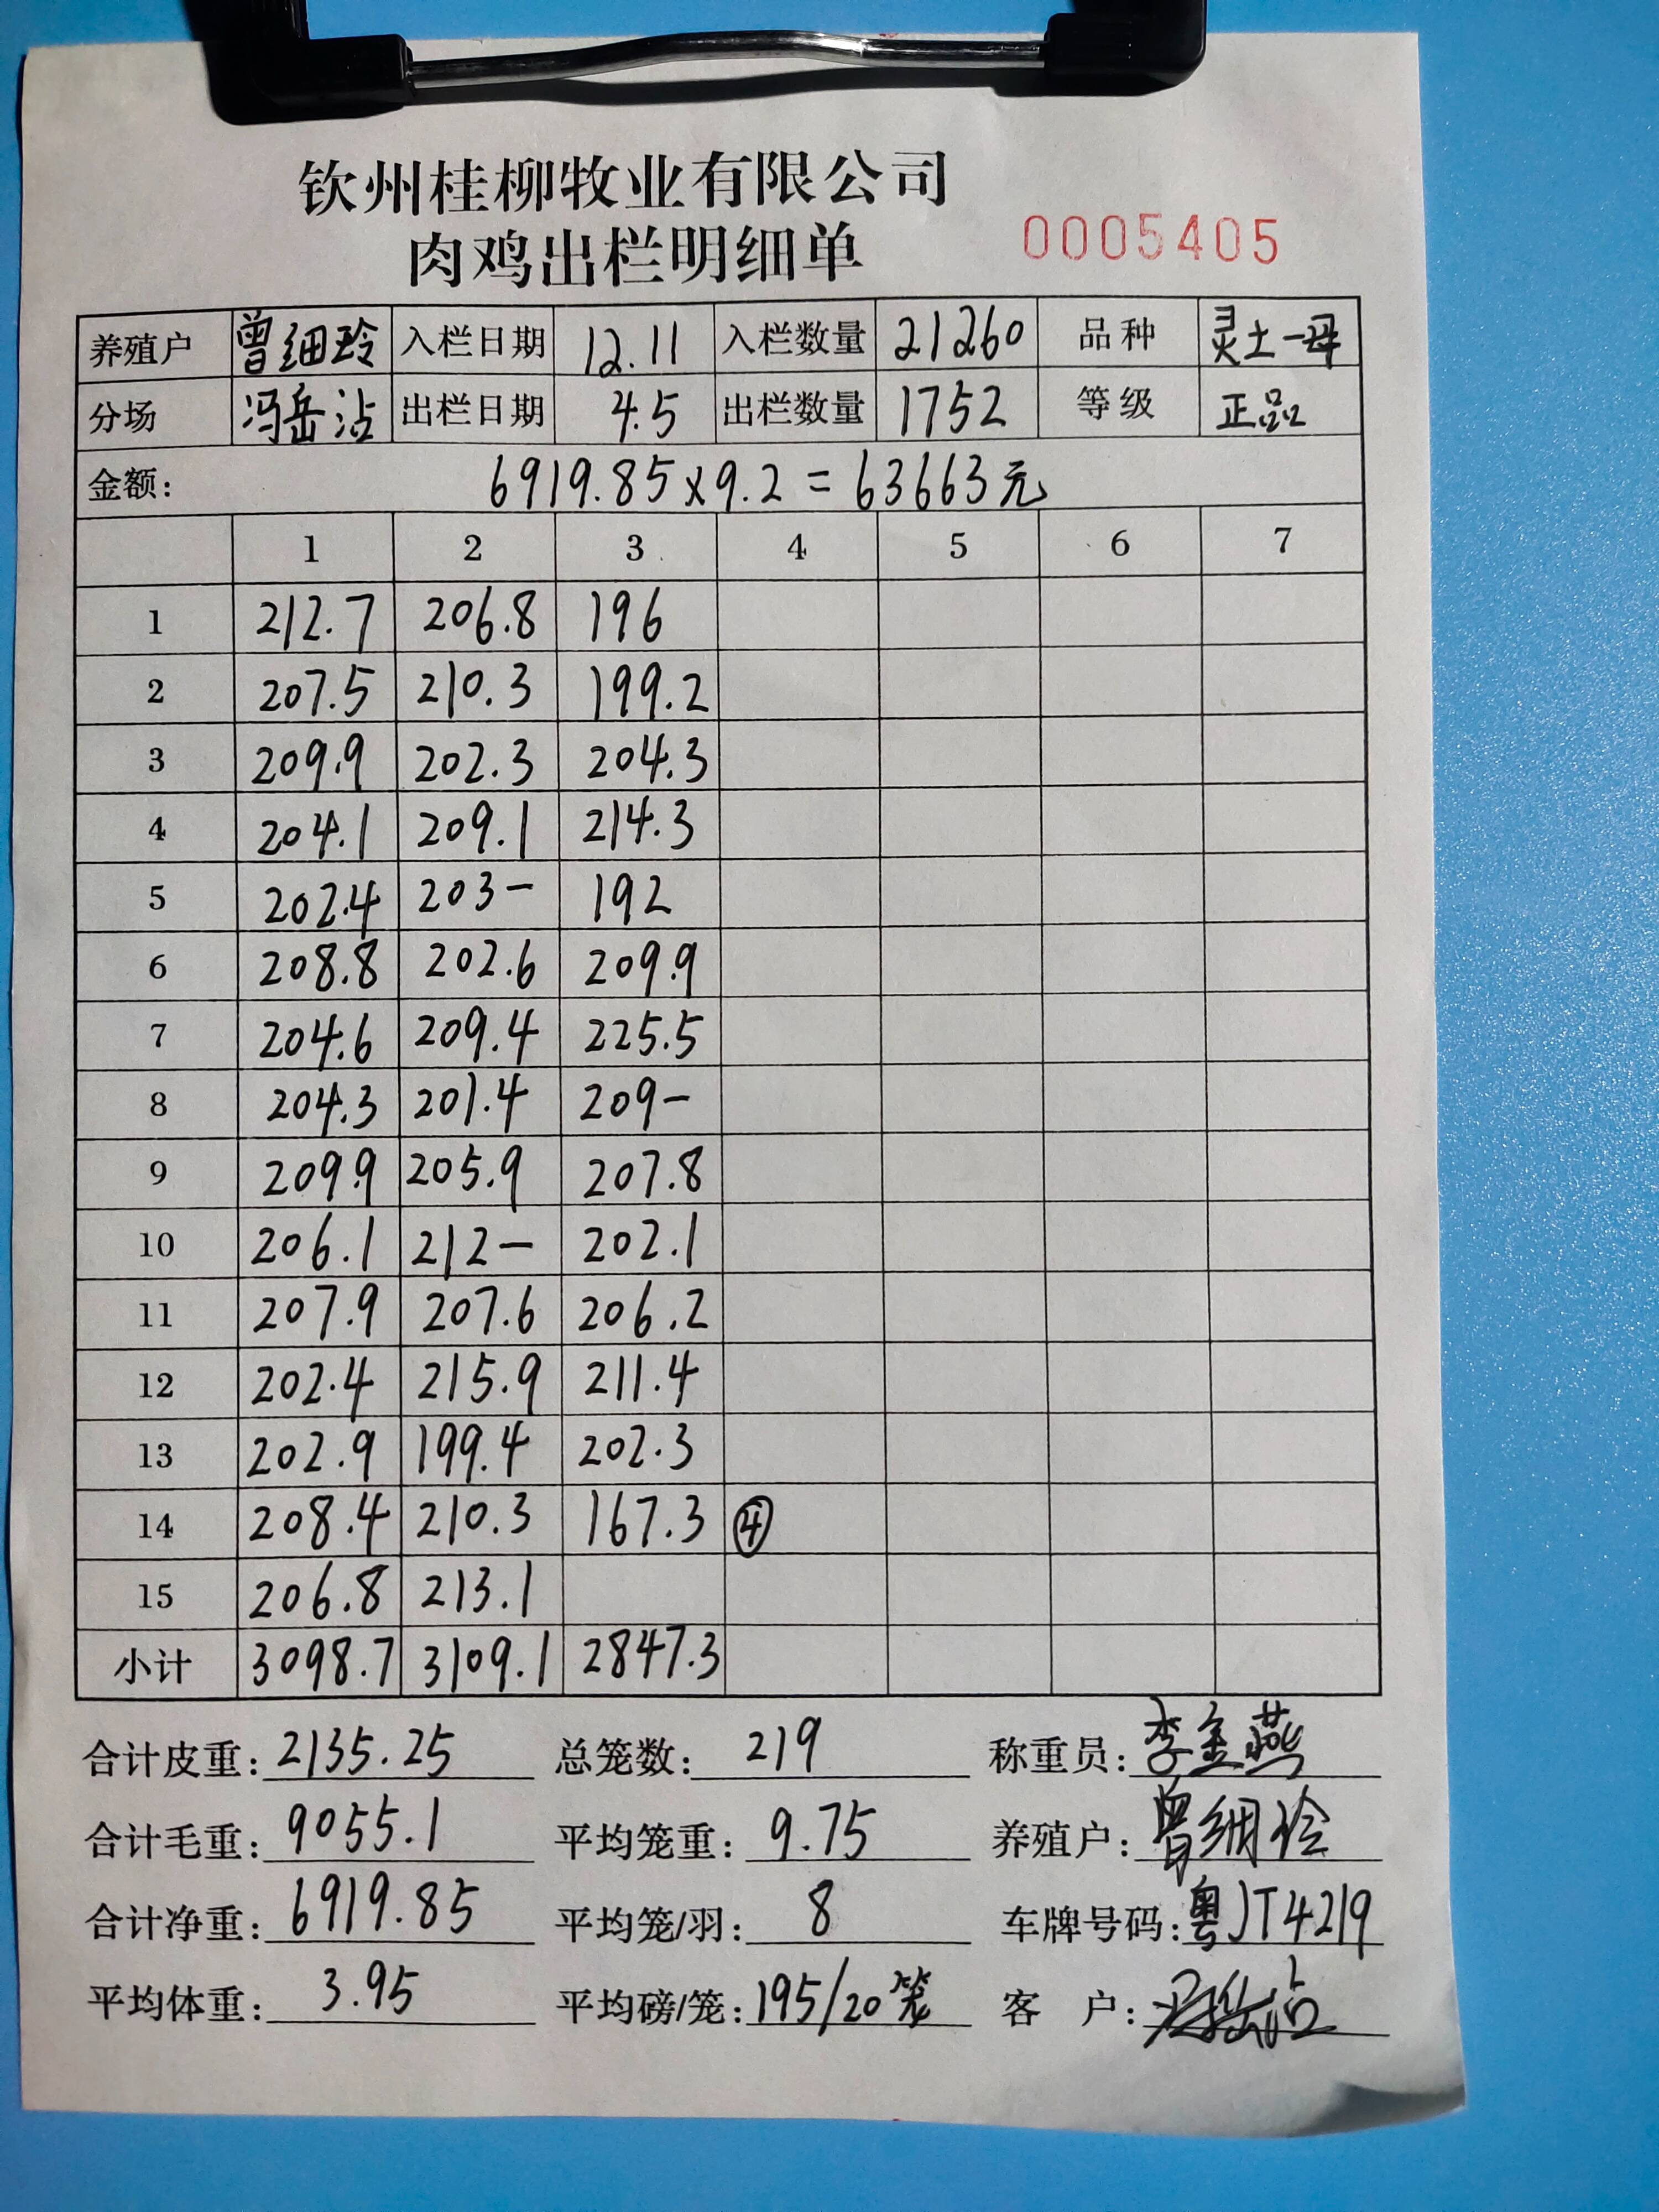 钦州桂柳牧业有限公司
肉鸡出栏明细单 0005405
养殖户 曾细玲 入栏日期 12.11 入栏数量 21260 品种 灵土一母
分场 冯岳沾 出栏日期 4.5 出栏数量 1752 等级 正品
金额: 6919.85×9.2=63663元
1 2 3 4 5 6 7
1 212.7 206.8 196
2 207.5 210.3 199.2
3 209.9 202.3 204.3
4 204.1 209.1 214.3
5 202.4 203- 192
6 208.8 202.6 209.9
7 204.6 209.4 225.5
8 204.3 201.4 209-
9 209.9 205.9 207.8
10 206.1 212- 202.1
11 207.9 207.6 206.2
12 202.4 215.9 211.4
13 202.9 199.4 202.3
14 208.4 210.3 167.3 ④
15 206.8 213.1
小计 3098.7 3109.1 2847.3
合计皮重: 2135.25 总笼数: 219 称重员: 李金燕
合计毛重: 9055.1 平均笼重: 9.75 养殖户: 曾细玲
合计净重: 6919.85 平均笼/羽: 8 车牌号码: 粤JT4219
平均体重: 3.95 平均磅/笼: 195/20笼 客户: 冯岳沾